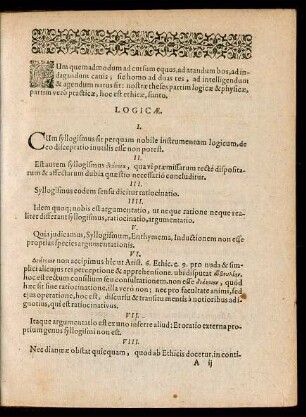 CUm quemadmodum ad cursum equus, ad arandum bos, ad in-
dagandum canis; sic homo ad duas res, ad intelligendum
& agendum natus sit: nostræ theses partim logicæ & physicæ,
partim verò practicæ, hoc est ethicæ, sunto.
LOGICÆ.
I.
CUm syllogismus sit perquam nobile instrumentum logicum, de
eo disceptatio inutilis esse non potest.
II.
Est autem syllogismus διάνοια, qua vi præmissarum rectè disposita-
rum & affectarum dubia quæstio necessariò concluditur.
III.
Syllogismus eodem sensu dicitur ratiocinatio.
IIII.
Idem quoq; nobis est argumentatio, ut neque ratione neque rea-
liter differant syllogismus, ratiocinatio, argumentatio.
V.
Quin judicamus, Syllogismum, Enthymema, Inductionem non esse
proprias species argumentationis.
VI.
Διάνοιαν non accipimus hîc ut Arist. 6. Ethic. c. 9. pro nuda & sim-
plici alicujus rei perceptione & apprehensione. ubi disputat
hoc est rectum consilium seu consultationem, non esse διάνοιαν, quòd
hæc sit sine ratiocinatione, illa verò non; nec pro facultate animæ, sed
ejus operatione, hoc est, discursu & transitu mentis à notioribus ad i-
gnotius, qui est ratiocinativus.
VII.
Itaque argumentatio est ex uno inferre aliud: Et oratio externa pro-
prium genus syllogismi non est.
VIII.
Nec dianœæ obstat quicquam, quod ab Ethicis docetur, in conti-
A ij